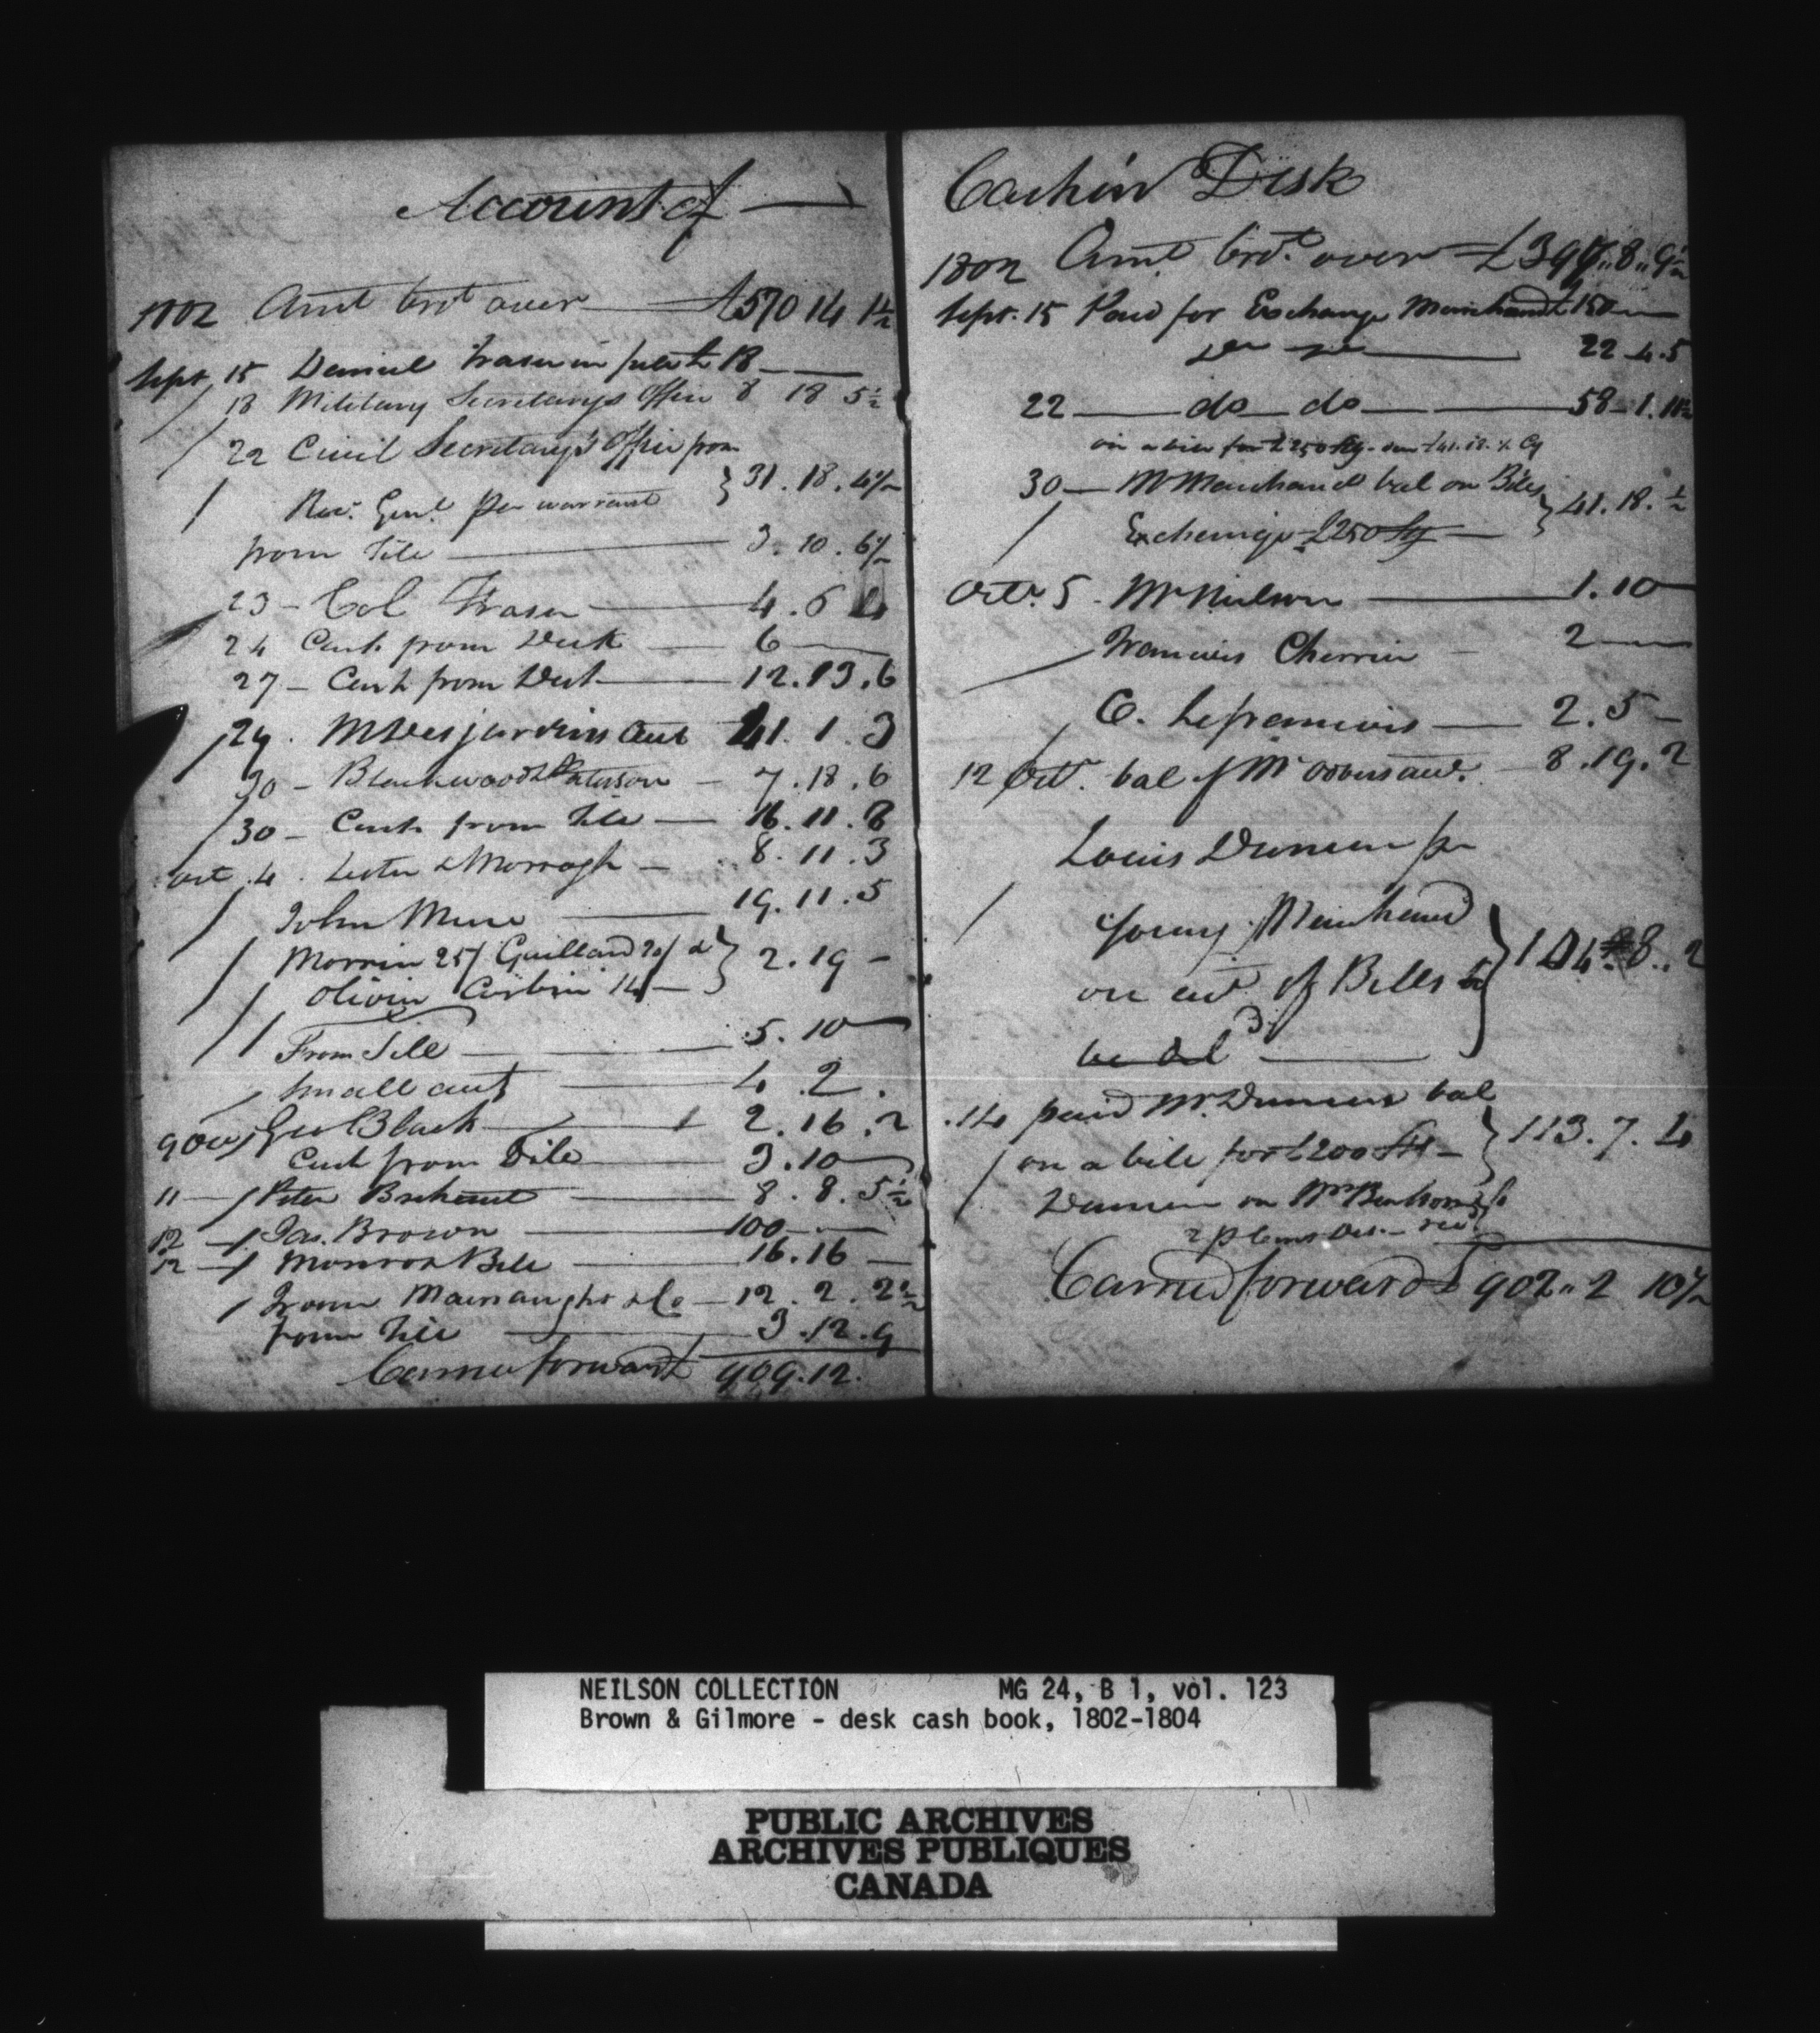 Account of —
1802 Amt brt over — £570 14 1½
Sept. 15 Daniel Fraser in part 18 — —
18 Military Secretarys Office 8 18 5½
22 Civil Secretary's Office from
Rec. Genl. per warrant } 31.18.4½
from Till — 3.10.6½
23 – Col Fraser — 4.6 4
24 Cash from Desk — 6 —
27 – Cash from Desk — 12.13.6
29. M Desjardins Acct 41.1.3
30 – Blackwood & Paterson — 7.18.6
30 – Cash from Till — 16.11.8
Oct .4. Lester & Morrogh — 8.11.3
John Mure — 19.11.5
Morrin 25/ Guillard 20/ & } 2.19 –
Olivier Corbin 14/ —
From Till — 5.10 —
Small acct — 4.2.
9 Oct Geo Black — 2.16.2
Cash from Till — 3.10 —
11 — Peter Brehaut — 8.8.5½
12 — Jas. Brown — 100 — —
12 — Monros Bill — 16.16 —
From Macnaught & Co — 12.2.2½
from Till — 3.12.9
Carried forward 909.12.
Cash in Desk
1802 Amt. brt. over — £396..8..9½
Sept. 15 Paid for Exchange Marchand £150 —
22.4.5
22 — do — do — 58.1.11½
on a bill for £250 Stg.
30 — Mr Marchand bal on Bills
Exchange £250 Stg — } 41.18.½
Octr. 5. Mr Neilson — 1.10 —
Francois Cherrier – 2 —
C. Lefrancois — 2.5 –
12 Octr. bal of Mr — 8.19.2
Louis Dumon pr
young Marchand
on acct of Bills to } 104.8..2
be deld —
.14 paid Mr. Dumon bal
on a bill for £200 Stg — } 113.7.4
Dumon on Mr
Carried forward £902..2 10½
NEILSON COLLECTION MG 24, B 1, vol. 123
Brown & Gilmore - desk cash book, 1802-1804
PUBLIC ARCHIVES
ARCHIVES PUBLIQUES
CANADA